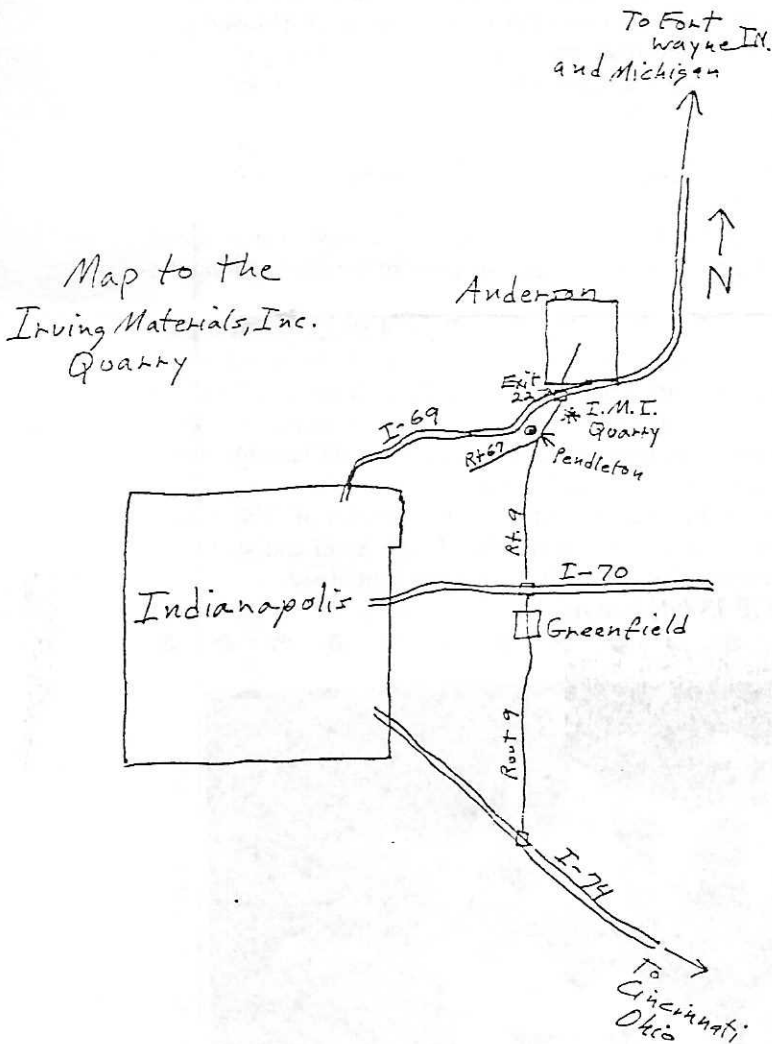 To Fort
Wayne IN.
and Michigan
N
Map to the
Irving Materials, Inc.
Quarry
Anderson
Exit
22
I-69
I.M.I.
Quarry
Rt 67
Pendleton
Rt. 9
I-70
Indianapolis
Greenfield
Rout 9
I-74
To
Cincinnati
Ohio